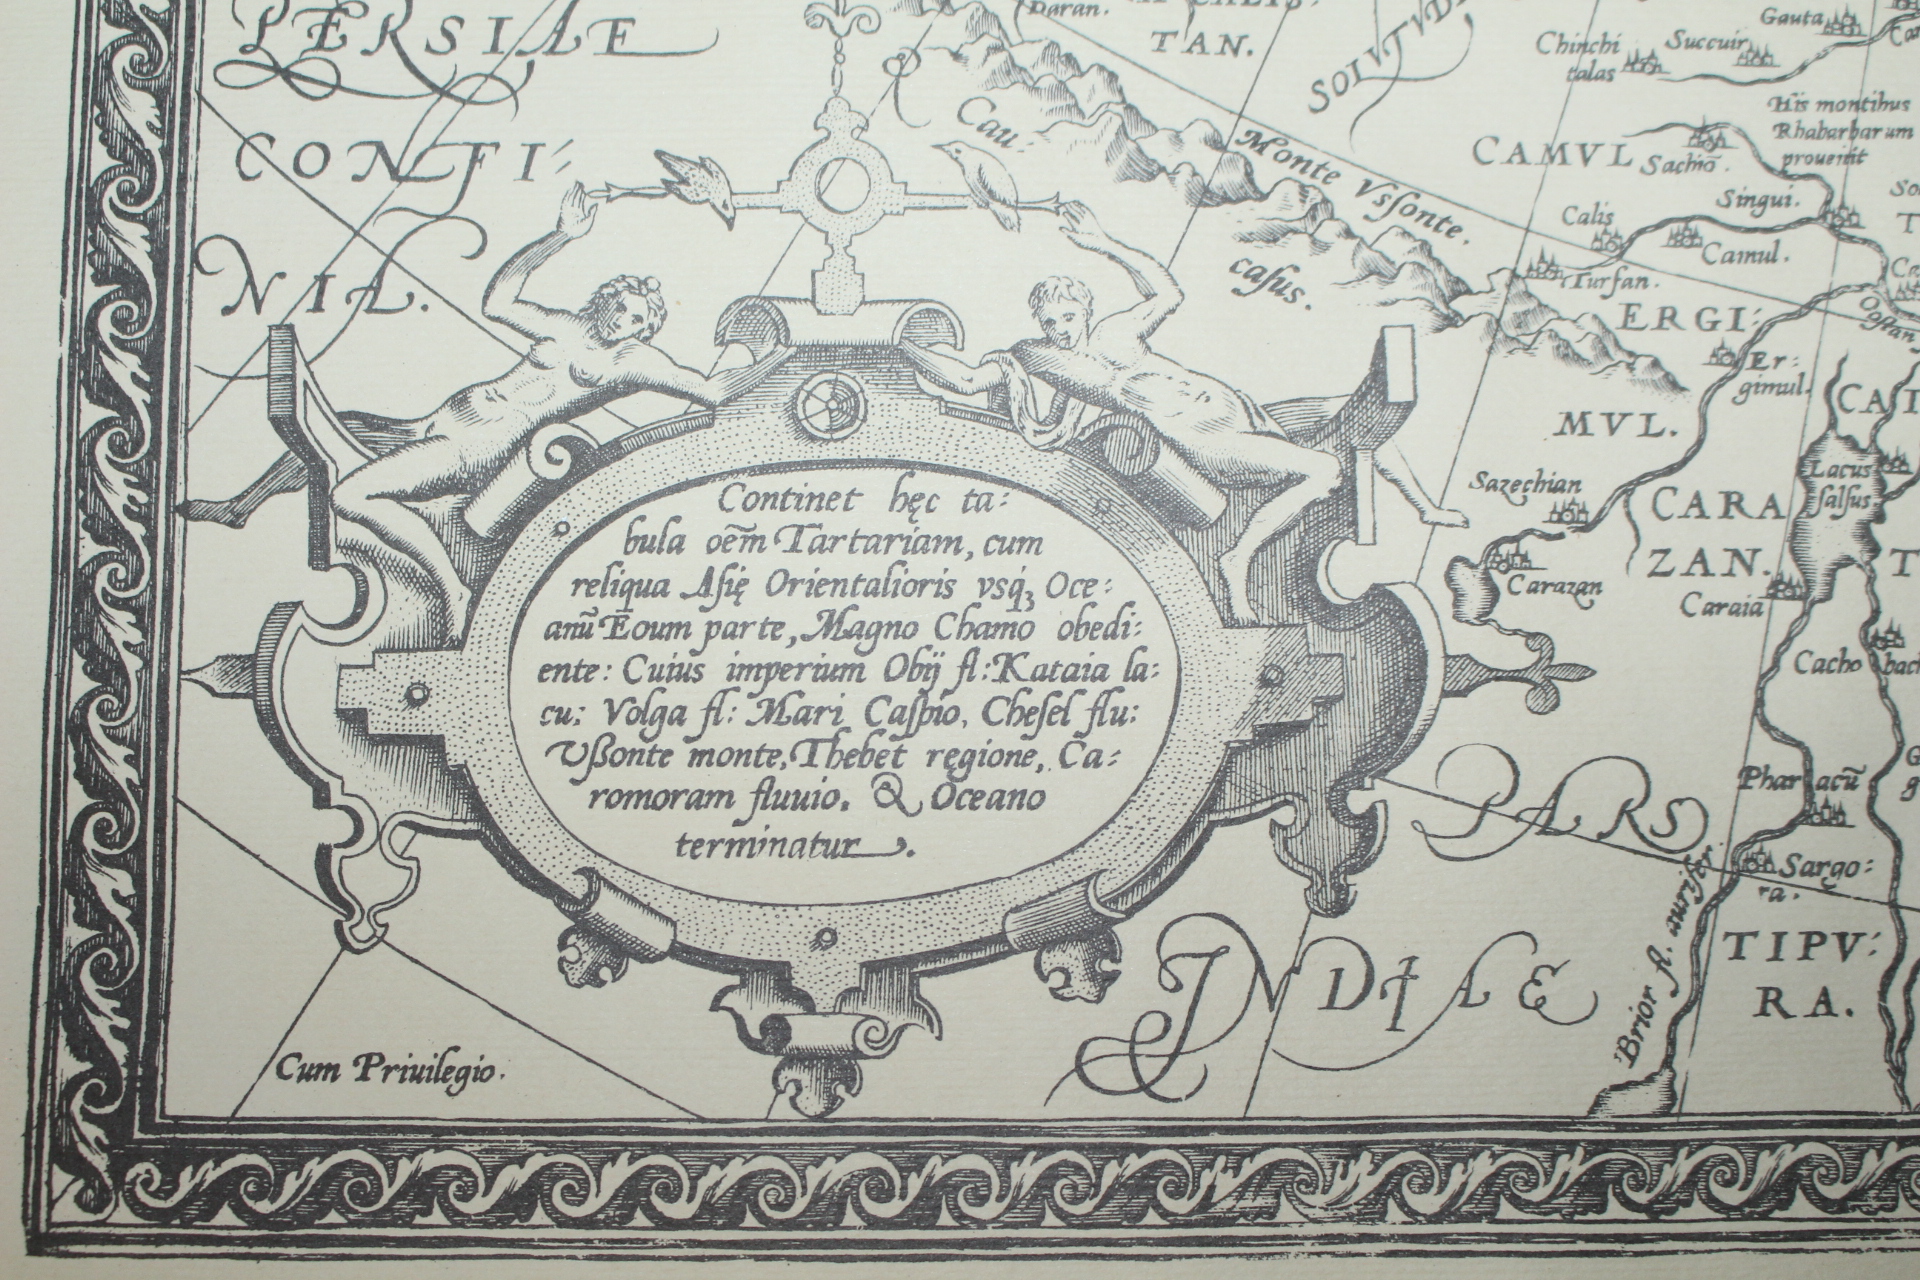 PERSIAE
CONFI:
NIA.
TAN.
Cau:
casus.
Monte Vssonte.
Chinchi
talas
Succuir
Gauta
His montibus
Rhabarbarum
prouenit
CAMVL
Sachiō.
Singui.
Calis
Camul.
Turfan.
ERGI:
MVL.
Er:
gimul.
Sazechian
CARA
ZAN.
Carazan
Caraia
Lacus
salsus
Cacho
Phar acū
Sargo:
ra.
TIPV:
RA.
Brior fl. aurifer
PARS
INDIAE
Continet hęc ta:
bula oēm Tartariam, cum
reliqua Asię Orientalioris vsq₃ Oce:
anū Eoum parte, Magno Chamo obedi:
ente: Cuius imperium Obij fl: Kataia la:
cu: Volga fl: Mari Caspio, Chesel flu:
Vßonte monte, Thebet regione, Ca:
romoram fluuio. & Oceano
terminatur.
Cum Priuilegio.